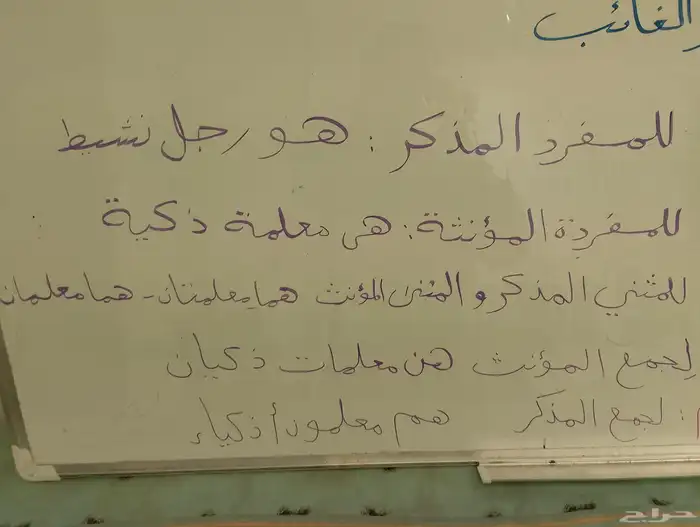 الغائب
للمفرد المذكر : هو رجل نشيط
للمفردة المؤنثة : هي معلمة ذكية
للمثني المذكر و المثنى المؤنث هما معلمتان - هما معلمان
لجمع المؤنث هن معلمات ذكيان
: لجمع المذكر هم معلمون أذكياء
حراج